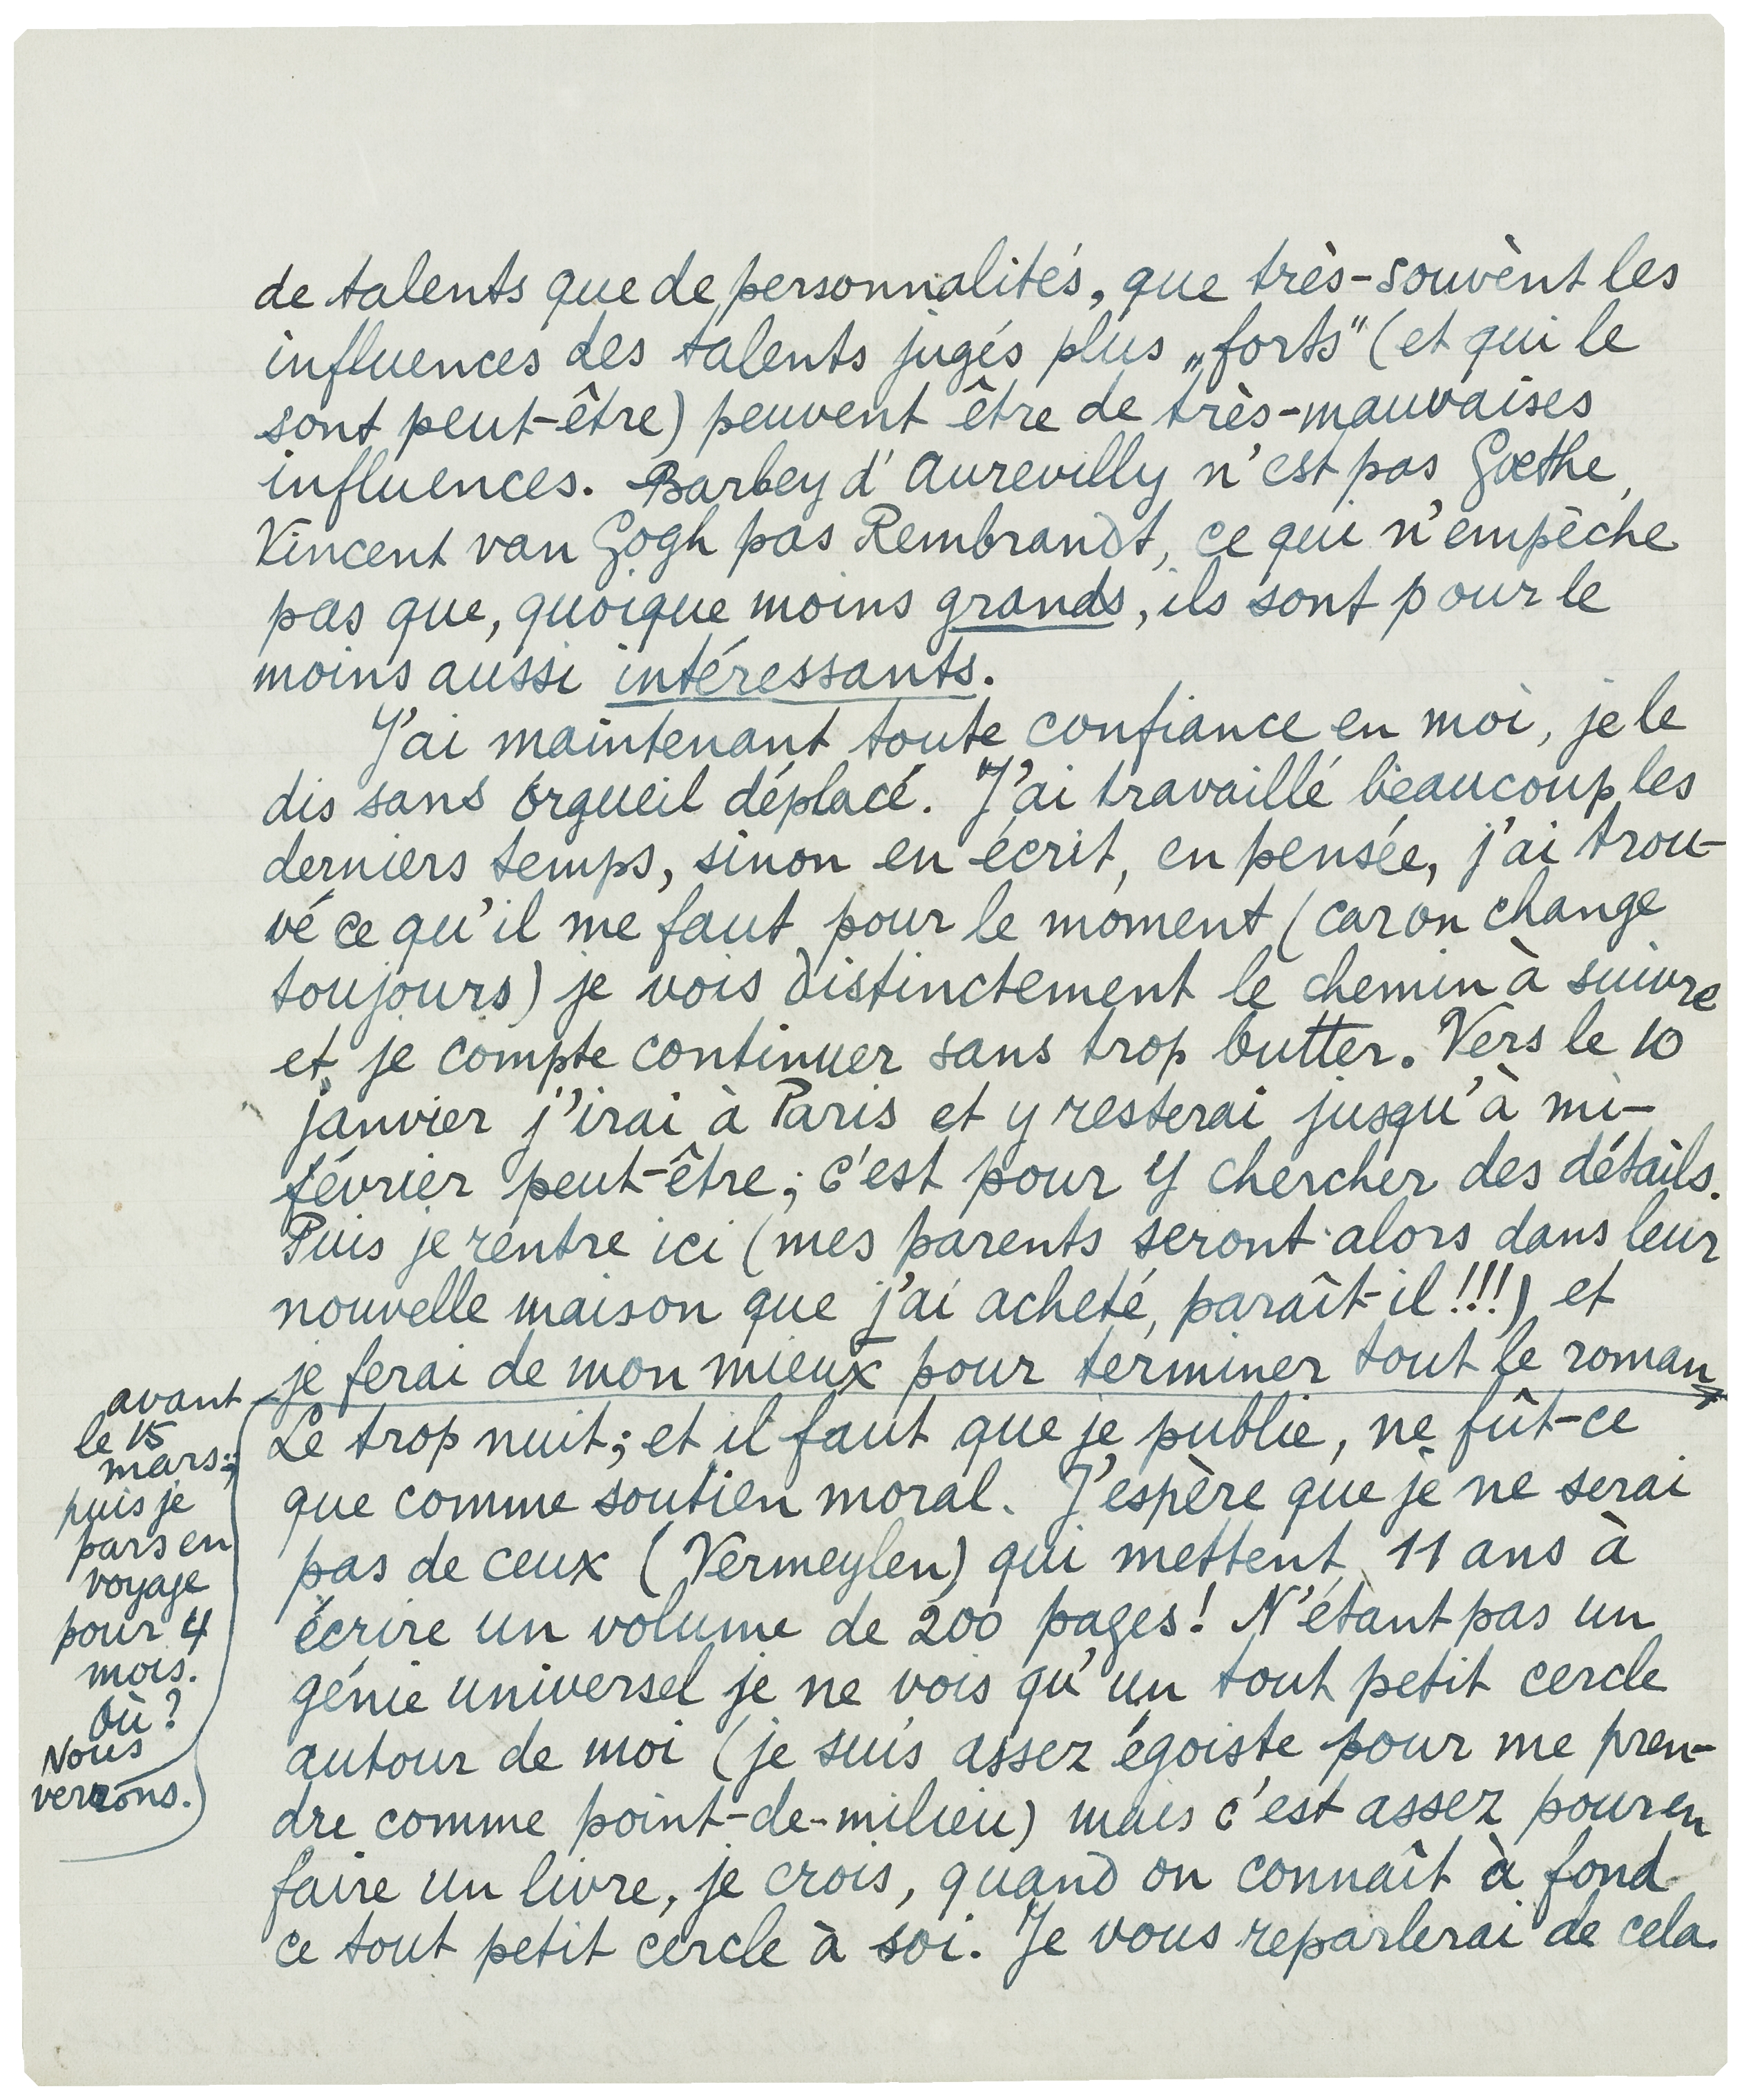 de talents que de personnalités, que très-souvènt les
influences des talents jugés plus „forts" (et qui le
sont peut-être) peuvent être de très-mauvaises
influences. Barbey d'Aurevilly n'est pas Gœthe,
Vincent van Gogh pas Rembrandt, ce qui n'empêche
pas que, quoique moins grands, ils sont pour le
moins aussi intéressants.
J'ai maintenant toute confiance en moi, je le
dis sans orgueil déplacé. J'ai travaillé beaucoup les
derniers temps, sinon en écrit, en pensée, j'ai trou-
vé ce qu'il me faut pour le moment (car on change
toujours) je vois distinctement le chemin à suivre
et je compte continuer sans trop butter. Vers le 10
janvier j'irai à Paris et y resterai jusqu'à mi-
février peut-être; c'est pour y chercher des détails.
Puis je rentre ici (mes parents seront alors dans leur
nouvelle maison que j'ai acheté, paraît-il!!!) et
je ferai de mon mieux pour terminer tout le roman
avant
le 15
mars;
puis je
pars en
voyage
pour 4
mois.
Où?
Nous
verrons.)
Le trop nuit; et il faut que je publie, ne fût-ce
que comme soutien moral. J'espère que je ne serai
pas de ceux (Vermeylen) qui mettent 11 ans à
écrire un volume de 200 pages! N'étant pas un
génie universel je ne vois qu'un tout petit cercle
autour de moi (je suis assez égoiste pour me pren-
dre comme point-de-milieu) mais c'est assez pour en
faire un livre, je crois, quand on connaît à fond
ce tout petit cercle à soi. Je vous reparlerai de cela.